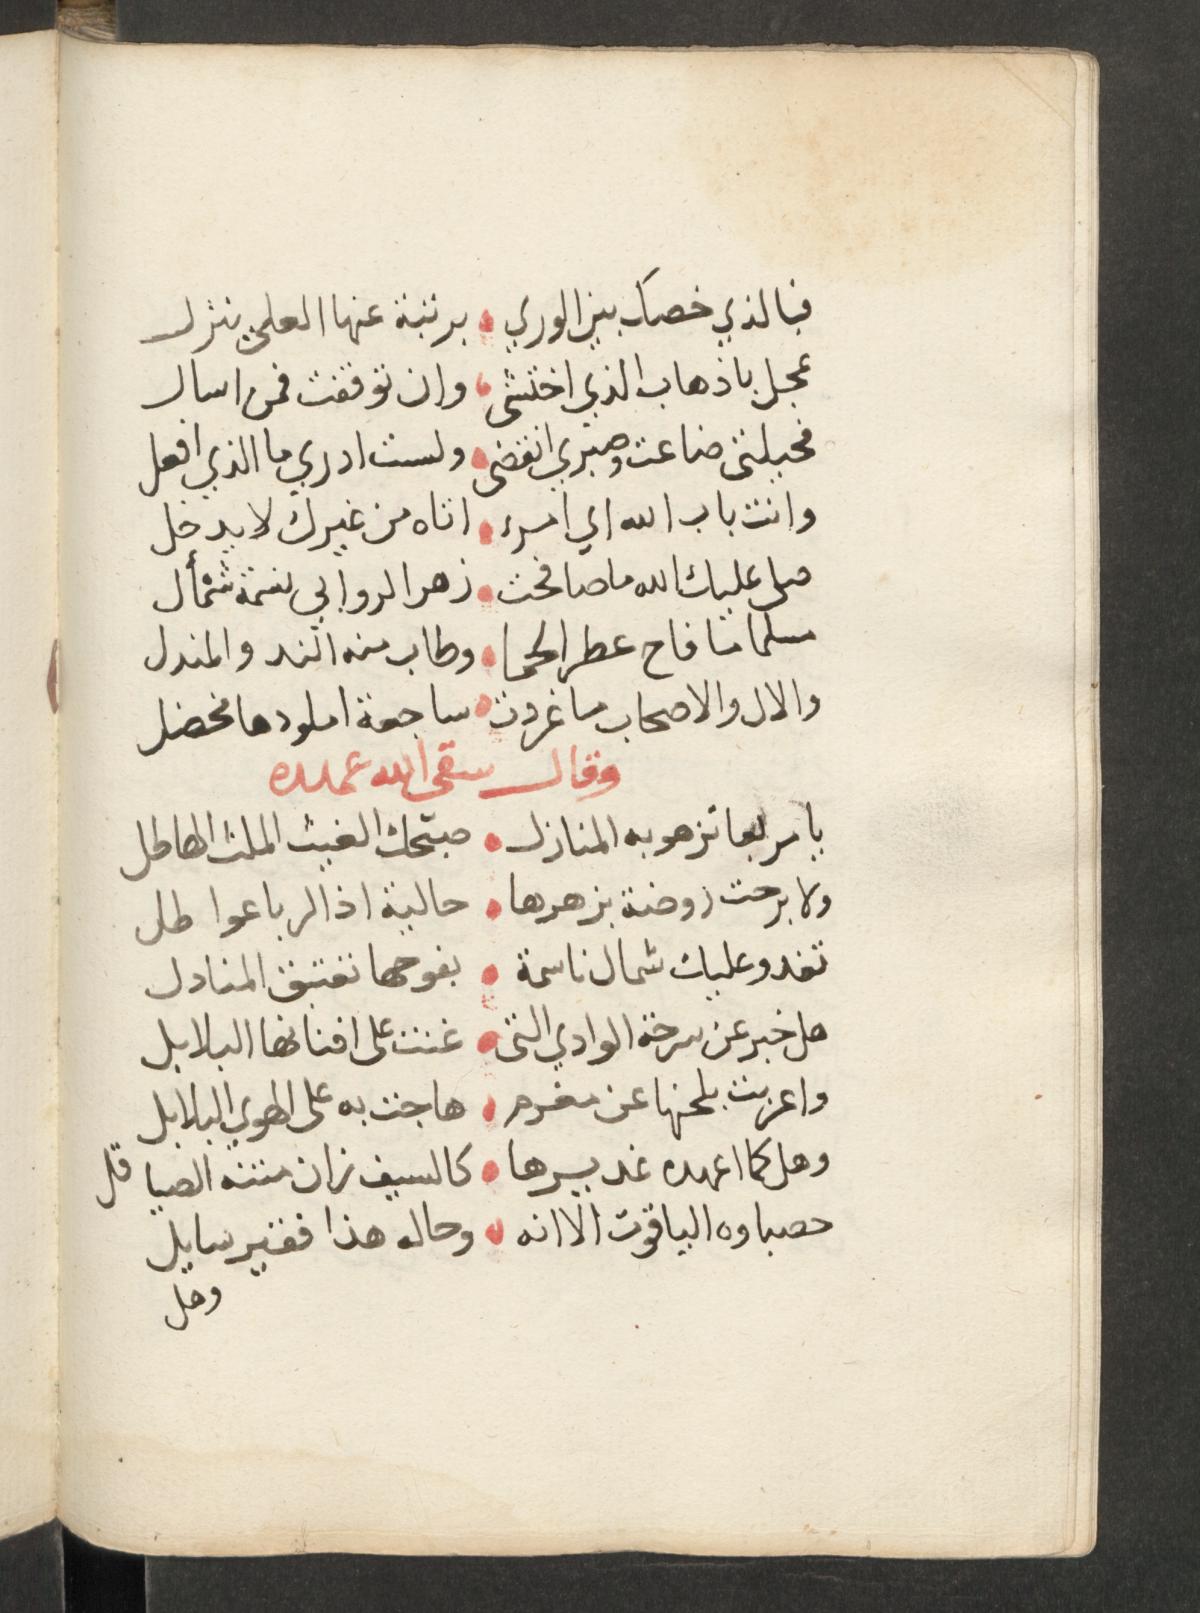 فبالذي خصك بين الوري • برتبة عنها العلي ينزل
عجل باذهاب الذي اختشي • وان توقفت فمن اسال
فحيلتي ضاعت وصبري انقضي • ولست ادري ما الذي افعل
وانت باب الله اي امرء • اتاه من غيرك لا يدخل
صلي عليك الله ما صافحت • زهر الروابي نسمة شمأل
مسلما ما فاح عطر الحما • وطاب منه الند والمندل
والال والاصحاب ما غردت • ساجعة املودها مخضل
وقال سقي الله عهده
يا مربعا تزهو به المنازل • صبحك الغيث الملث الهاطل
ولا برحت روضة بزهرها • حالية اذ الرباعوا طل
تغدو عليك شمال ناسمة • بفوحها تفتيق المنادل
هل خبر عن سرحة الوادي التي • غنت علي افنانها البلابل
واعربت بلحنها عن مغرم • هاجت به علي الهوي البلابل
وهل كما اعهده غديرها • كالسيف زان متنه الصياقل
حصباوه الياقوت الا انه • وحاله هذا فقير سايل
وهل